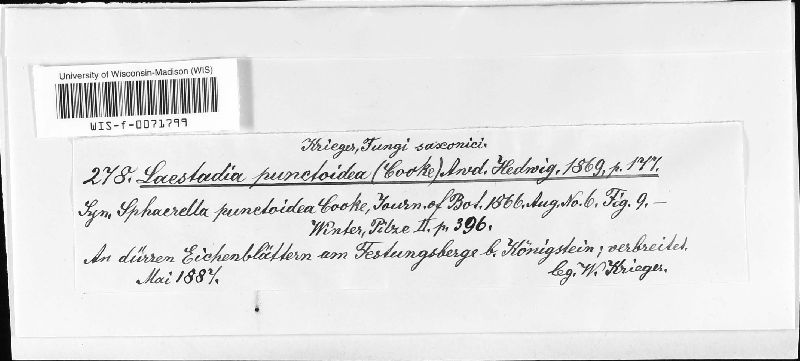 University of Wisconsin-Madison (WIS)
WIS-f-0071799
Krieger, Fungi saxonici.
278. Laestadia punctoidea (Cooke) Awd. Hedwig. 1869, p. 177.
Syn. Sphaerella punctoidea Cooke, Journ. of Bot. 1866. Aug. No. 6. Fig. 9. —
Winter, Pilze II. p. 396.
An dürren Eichenblättern am Festungsberge b. Königstein; verbreitet.
Mai 1887. lg. W. Krieger.